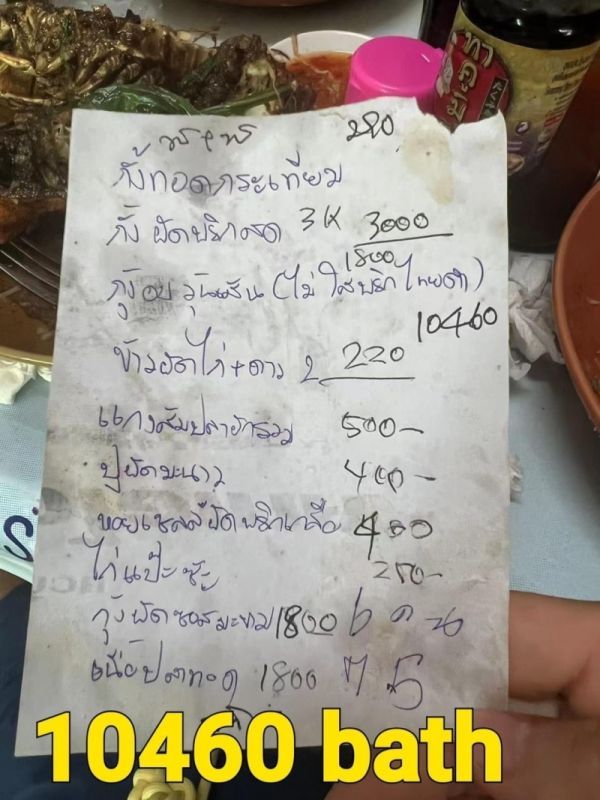 290
กั้งทอดกระเทียม
กั้งผัดพริกสด 3K 3000
1800
กุ้งอบวุ้นเส้น (ไม่ใส่พริกไทยดำ)
10460
ข้าวผัดไก่+ดาว 2 220
แกงส้มปลา 500-
ปูผัดมะนาว 400-
หอยเชลล์ผัดพริกเกลือ 400
ไก่แป๊ะซะ 250-
กุ้งผัดซอสมะขาม 1800 6 คน
1800 ต 5
10460 bath